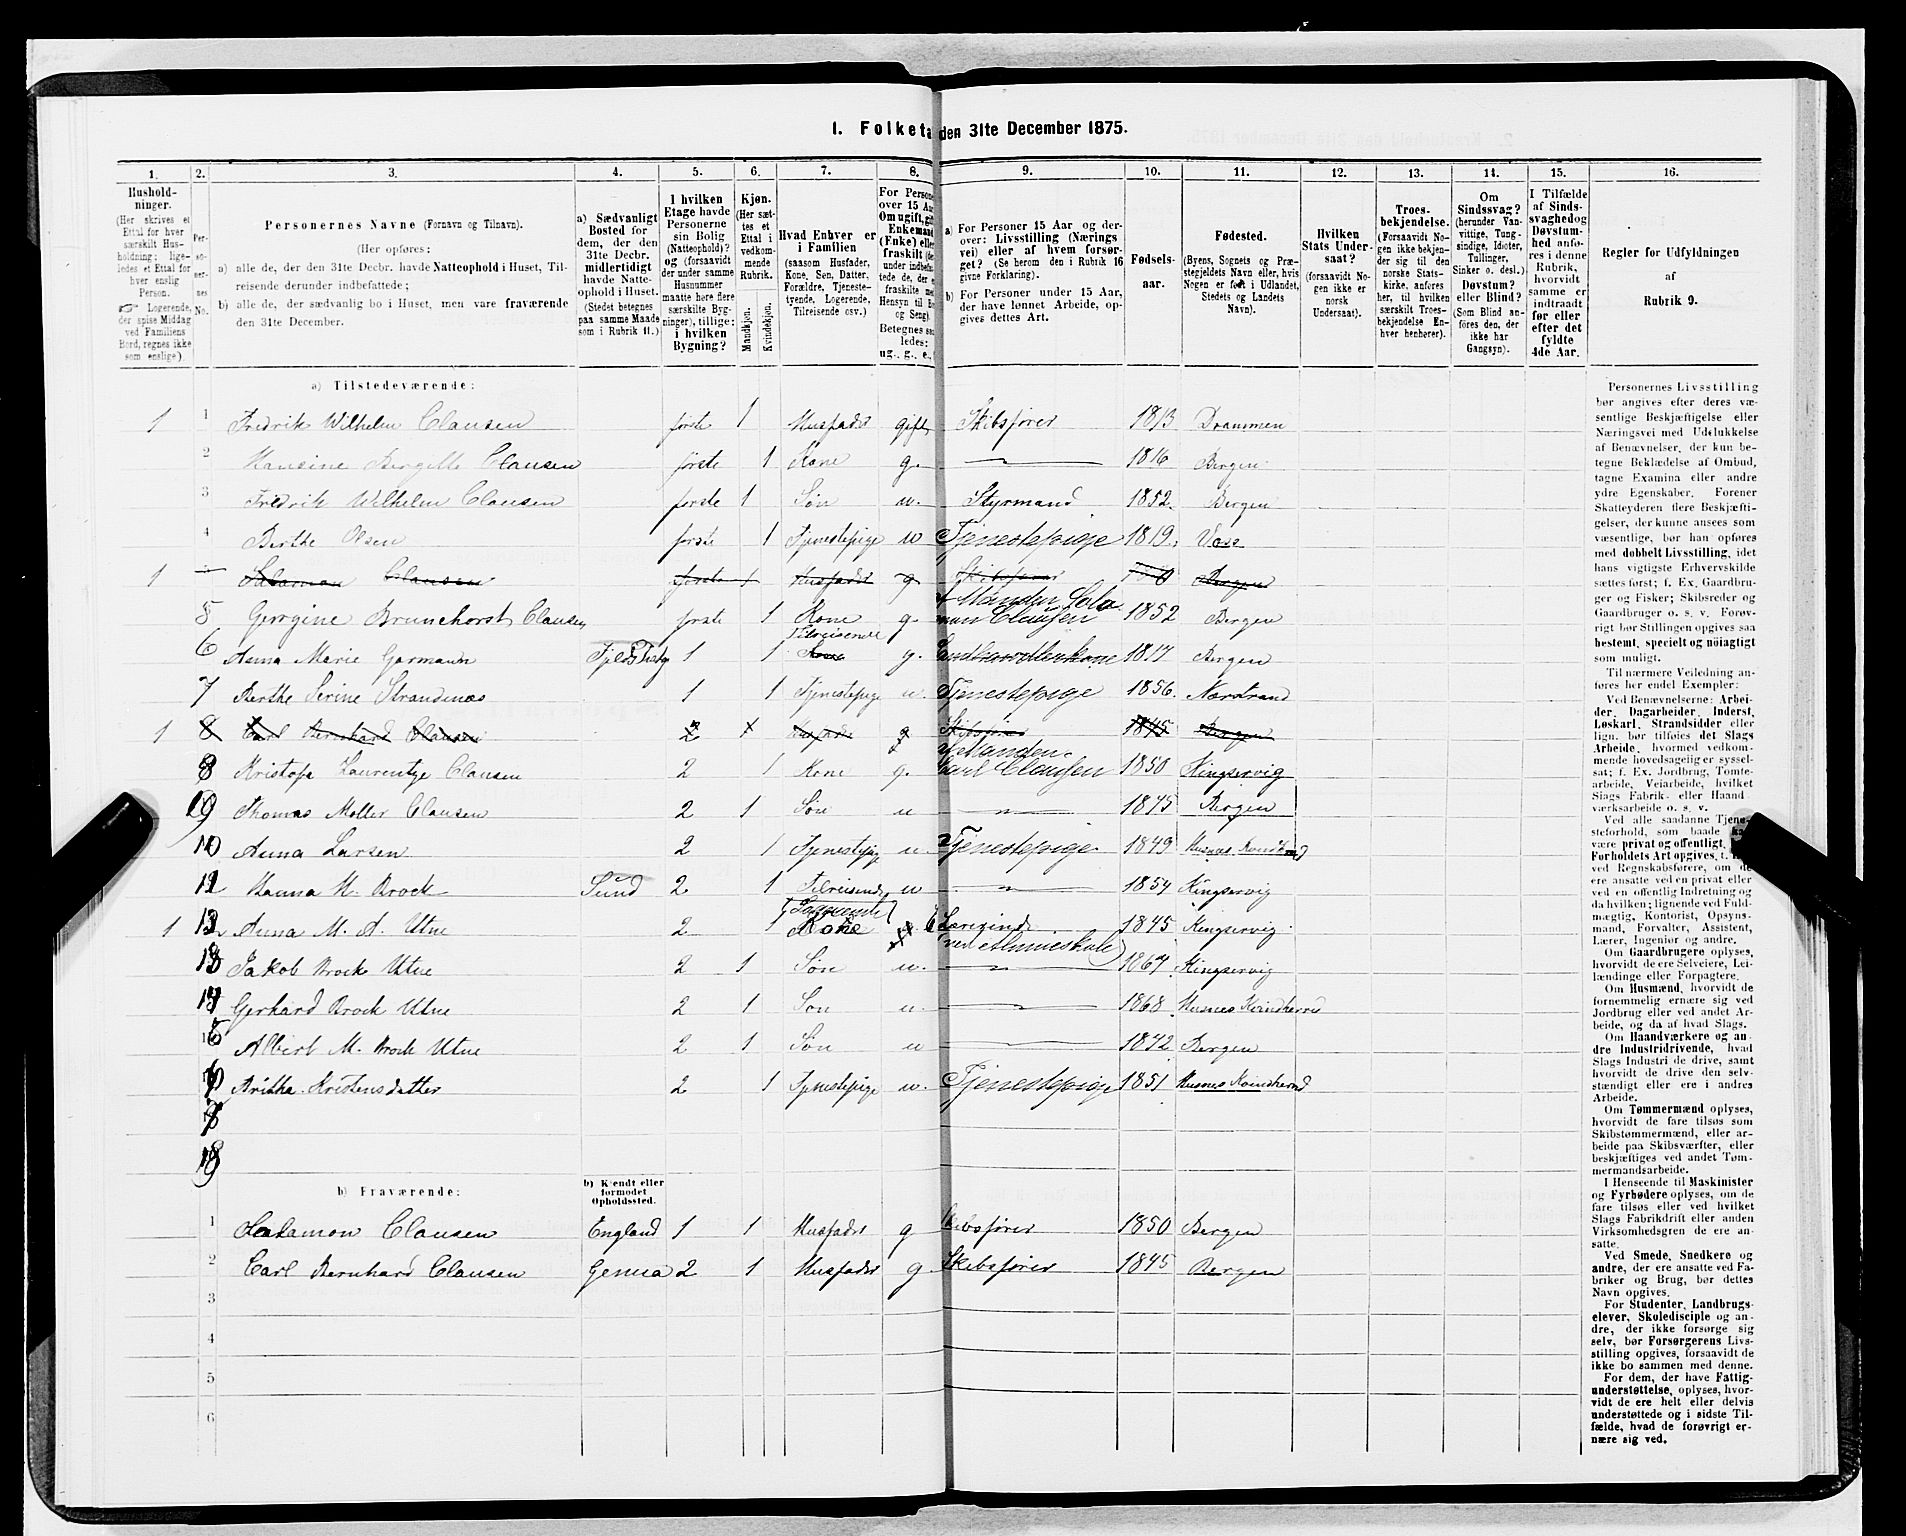 1. Folketæ den 31te December 1875.
1. 2. 3. 4. 5. 6. 7. 8. 9. 10. 11. 12. 13. 14. 15. 16.
Hushold-
ninger.
(Her skrives et
Ettal for hver
særskilt Hus-
holdning; lige-
ledes et Ettal for
hver enslig
Person.
☞ Logerende,
der spise Middag
ved Familiens
Bord, regnes ikke
som enslige).
Per-
so-
ner-
nes
No.
Personernes Navne (Fornavn og Tilnavn).
(Her opføres:
a) alle de, der den 31te Decbr. havde Natteophold i Huset, Til-
reisende derunder indbefattede;
b) alle de, der sædvanlig bo i Huset, men vare fraværende
den 31te December.
a) Sædvanligt
Bosted for
dem, der den
31te Decbr.
midlertidigt
havde Natte-
ophold i Huset.
(Stedet betegnes
paa samme Maade
som i Rubrik 11.)
I hvilken
Etage havde
Personerne
sin Bolig
(Natteophold)?
og (forsaavidt
der under samme
Husnummer
maatte høre flere
særskilte Byg-
ninger), tillige:
i hvilken
Bygning?
Kjøn.
(Her sæt-
tes et
Ettal i
vedkom-
mende
Rubrik.
Mandkjøn.
Kvindekjøn.
Hvad Enhver er
i Familien
(saasom Husfader,
Kone, Søn, Datter,
Forældre, Tjeneste-
tyende, Logerende,
Tilreisende osv.)
For Persone
over 15 Aa
Om ugift, gif
Enkemand
(Enke) elle
fraskilt (der
under indbefat
tede de, der e
fraskilte med
Hensyn til Bo
og Seng).
Betegnes saa
ledes:
ug., g., e.,
a) For Personer 15 Aar og der-
over: Livsstilling (Nærings
vei) eller af hvem forsør-
get? (Se herom den i Rubrik 16
givne Forklaring).
b) For Personer under 15 Aar,
der have lønnet Arbeide, op-
gives dettes Art.
Fødsels-
aar.
Fødested.
(Byens, Sognets og Præ-
stegjeldets Navn eller, hvis
Nogen er født i Udlandet,
Stedets og Landets
Navn).
Hvilken
Stats Under-
saat?
(forsaavidt No-
gen ikke er
norsk
Undersaat).
Troes-
bekjendelse.
(Forsaavidt No-
gen ikke bekjen-
der sig til den
norske Stats-
kirke, anføres
her, til hvilken
særskilt Troes-
bekjendelse En-
hver henhører).
Om
Sindssvag?
(herunder Van-
vittige, Tung-
sindige, Idioter,
Tullinger,
Sinker o. desl.)
Døvstum?
eller Blind?
(Som Blind an-
føres den, der
ikke har
Gangsyn).
I Tilfælde
af Sinds-
svaghed og
Døvstum-
hed anfø-
res i denne
Rubrik,
hvorvidt
samme er
indtraadt
før eller
efter det
fyldte
4de Aar.
Regler for Udfyldningen
af
Rubrik 9.
a) Tilstedeværende:
1 1 Fredrik Wilhelm Clausen første 1 Husfader gift Skibsfører 1813 Drammen
2 Hansine Bergitte Clausen første 1 Kone g. 1816 Bergen
3 Fredrik Wilhelm Clausen første 1 Søn u. Styrmand 1852. Bergen
4 Berthe Olsen første 1 Tjenestepige u Tjenestepige 1819. Voss
1 Salamon Clausen første 1 Husfader g Skibsfører Bergen
5 Georgine Brunchorst Clausen første 1 Kone g. af Manden Salo
mon Clausen 1852 Bergen
6 Anna Marie Garmann 1 1 Tilreisende Kone g. 1817 Bergen
7 Berthe Serine Strandenæs 1 1 Tjenestepige u. Tjenestepige 1856. Narstrand
1 8 Carl Bernhard Clausen 2 1 Husfader g Skibsfører 1845 Bergen
8 Kristofa Laurentze Clausen 2 1 Kone g. af Manden
Carl Clausen 1850 Kingservig
9 Thomas Møller Clausen 2 1 Søn u 1875 Bergen
10 Anna Larsen 2 1 Tjenestepige u. Tjenestepige 1849 Husnæs Kvindherred
11 Hanna M. Brock Sund 2 1 Tilreisende u 1854 Kingservig
1 12 Anna M. A. Utne 2 1 Logerende Kone E Lærerinde
ved Almueskole 1845 Kingservig.
13 Jakob Brock Utne 2 1 Søn u. 1867 Kingservig
14 Gerhard Brock Utne 2 1 Søn u. 1868 Husnæs Kvindherred
15 Albert M. Brock Utne 2 1 Søn u 1872 Bergen
16 Brithe Kristensdatter 2 1 Tjenestepige u. Tjenestepige 1851 Husnæs Kvindherred
b) Fraværende:
b) Kjendt eller
formodet
Opholdssted.
1 Salamon Clausen England 1 1 Husfader g Skibsfører 1850 Bergen
2 Carl Bernhard Clausen Genua 2 1 Husfader g Skibsfører 1845 Bergen
3
4
5
6
Personernes Livsstilling
bør angives efter deres væ-
sentlige Beskjæftigelse eller
Næringsvei med Udelukkelse
af Benævnelser, der kun be-
tegne Beklædelse af Ombud,
tagne Examina eller andre
ydre Egenskaber. Forener
Skatteyderen flere Beskjæfti-
gelser, der kunne ansees som
væsentlige, bør han opføres
med dobbelt Livsstilling, idet
hans vigtigste Erhvervskilde
sættes først; f. Ex. Gaardbru-
ger og Fisker; Skibsreder og
Gaardbruger o. s. v. Forøv-
rigt bør Stillingen opgives saa
bestemt, specielt og nøiagtigt
som muligt.
Til nærmere Veiledning an-
føres her endel Exempler:
Ved Benævnelserne: Arbei-
der, Dagarbeider, Inderst,
Løskarl, Strandsidder eller
lign. bør tilføies det Slags
Arbeide, hvormed vedkom-
mende hovedsagelig er syssel-
sat; f. Ex. Jordbrug, Tomte-
arbeide, Veiarbeide, hvilket
Slags Fabrik- eller Haand
værksarbeide o. s. v.
Ved alle saadanne Tjene-
steforhold, som baade kan
være privat og offentligt,
Forholdets Art opgives, t.
ved Regnskabsførere, om de
ere ansatte ved en privat eller
ved en offentlig Indretning og
da hvilken; lignende ved Fuld-
mægtig, Kontorist, Opsyns-
mand, Forvalter, Assistent,
Lærer, Ingeniør og andre.
Om Gaardbrugere oplyses,
hvorvidt de ere Selveiere, Lei-
lændinge eller Forpagtere.
Om Husmænd, hvorvidt de
fornemmelig ernære sig ved
Jordbrug eller ved andet Ar-
beide, og da af hvad Slags.
Om Haandværkere og an-
dre Industridrivende, hvad
Slags Industri de drive, samt
hvorvidt de drive den selv-
stændigt eller ere i andres
Arbeide.
Om Tømmermænd oplyses,
hvorvidt de fare tilsøs som
Skibstømmermænd, eller ar-
beide paa Skibsværfter, eller
beskjæftiges ved andet Tøm-
mermandsarbeide.
I Henseende til Maskinister
og Fyrbødere oplyses, om de
fare tilsøs eller ved hvilket
Slags Fabrikdrift eller anden
Virksomhedsgren de ere an-
satte.
Ved Smede, Snedkere og
andre, der ere ansatte ved Fa-
briker og Brug, bør dettes
Navn opgives.
For Studenter, Landbrugs-
elever, Skoledisciple og an-
dre, der ikke forsørge sig
selv, bør Forsørgerens Livs-
stilling opgives, forsaavidt de
ikke bo sammen med denne.
For dem, der have Fattig-
understøttelse, oplyses, hvor-
vidt de ere helt eller delvis
understøttede og i sidste Til-
fælde, hvad de forøvrigt er-
nære sig ved.